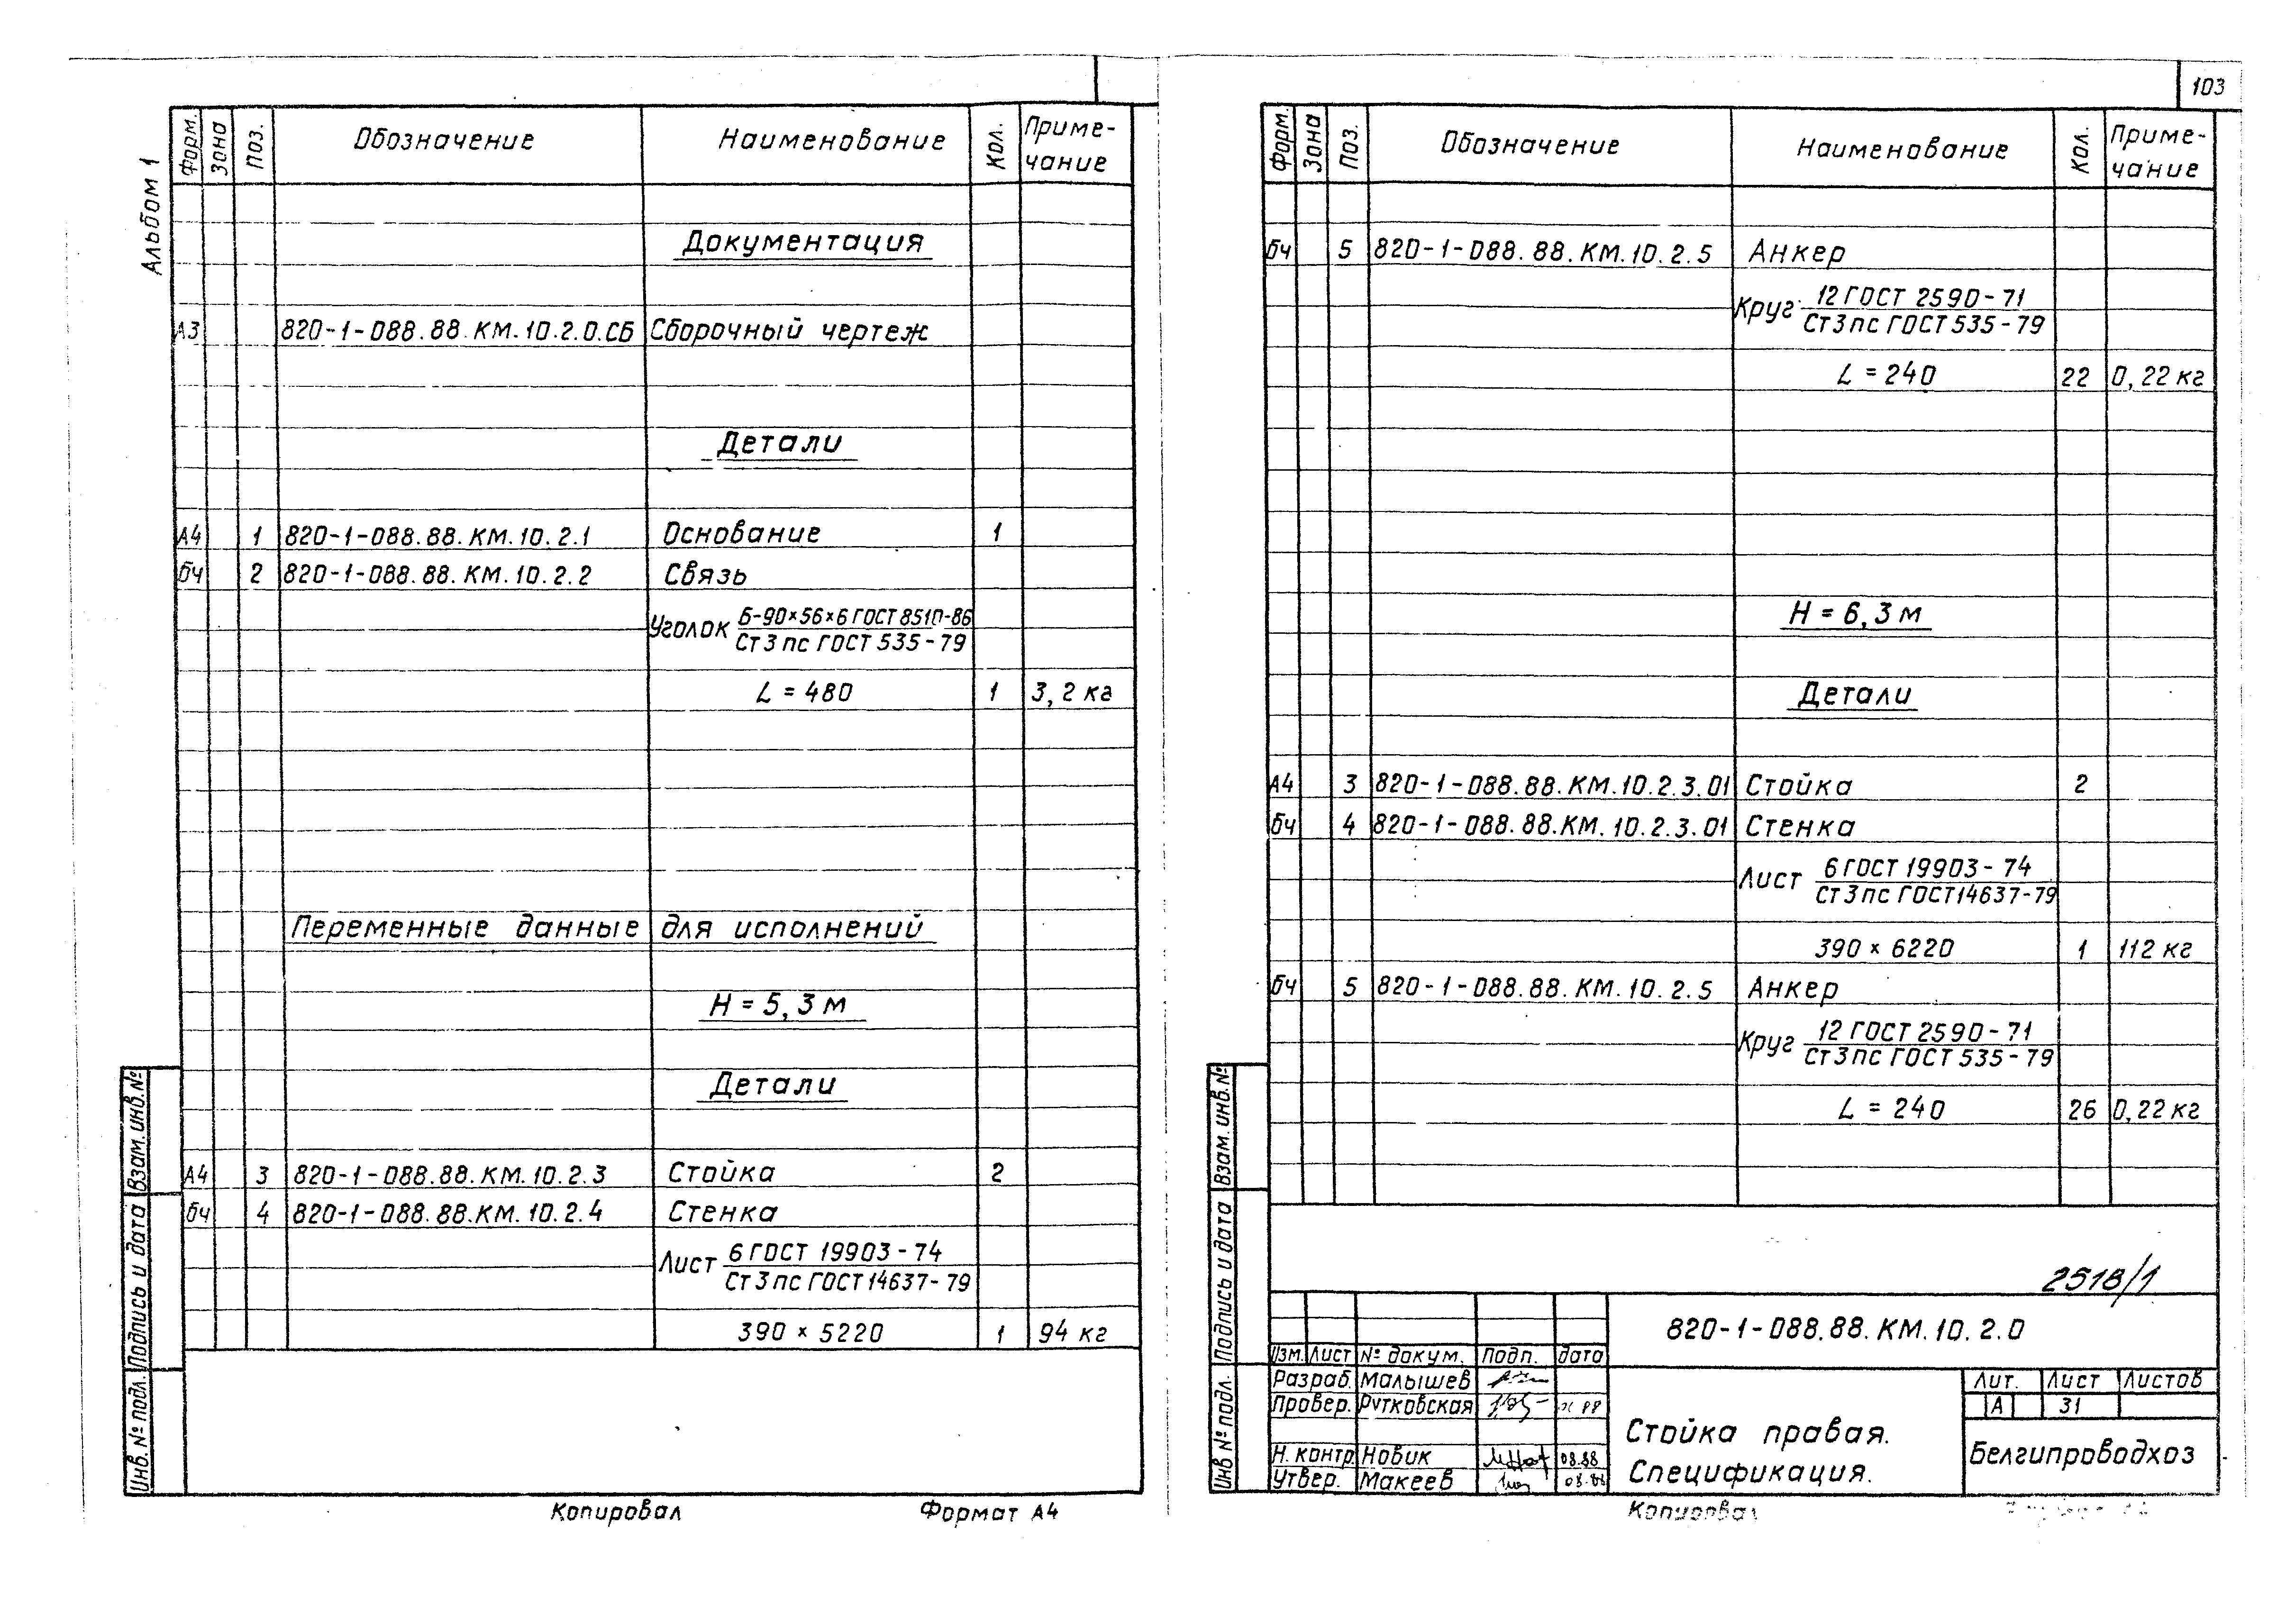 Альбом 1
Форм. Зона Поз. Обозначение Наименование Кол. Приме-
чание
Документация
А3 820-1-088.88.КМ.10.2.0.СБ Сборочный чертеж
Детали
А4 1 820-1-088.88.КМ.10.2.1 Основание 1
бч 2 820-1-088.88.КМ.10.2.2 Связь
Уголок Б-90×56×6 ГОСТ 8510-86
Ст3пс ГОСТ 535-79
L = 480 1 3,2 кг
Переменные данные для исполнений
Н = 5,3 м
Детали
А4 3 820-1-088.88.КМ.10.2.3 Стойка 2
бч 4 820-1-088.88.КМ.10.2.4 Стенка
Лист 6 ГОСТ 19903-74
Ст3пс ГОСТ 14637-79
390 × 5220 1 94 кг
Взам. инв. №
Подпись и дата
Инв. № подл.
Копировал Формат А4
103
Форм. Зона Поз. Обозначение Наименование Кол. Приме-
чание
бч 5 820-1-088.88.КМ.10.2.5 Анкер
Круг 12 ГОСТ 2590-71
Ст3пс ГОСТ 535-79
L = 240 22 0,22 кг
Н = 6,3 м
Детали
А4 3 820-1-088.88.КМ.10.2.3.01 Стойка 2
бч 4 820-1-088.88.КМ.10.2.3.01 Стенка
Лист 6 ГОСТ 19903-74
Ст3пс ГОСТ 14637-79
390 × 6220 1 112 кг
бч 5 820-1-088.88.КМ.10.2.5 Анкер
Круг 12 ГОСТ 2590-71
Ст3пс ГОСТ 535-79
L = 240 26 0,22 кг
Взам. инв. №
Подпись и дата
Инв № подл.
2518/1
820-1-088.88.КМ.10.2.0
Изм. Лист № докум. Подп. дата
Разраб. Малышев
Провер. Рутковская
Н. контр. Новик 08.88
Утвер. Макеев 08.88
Стойка правая.
Спецификация.
Лит. Лист Листов
А 31
Белгипроводхоз
Копировал